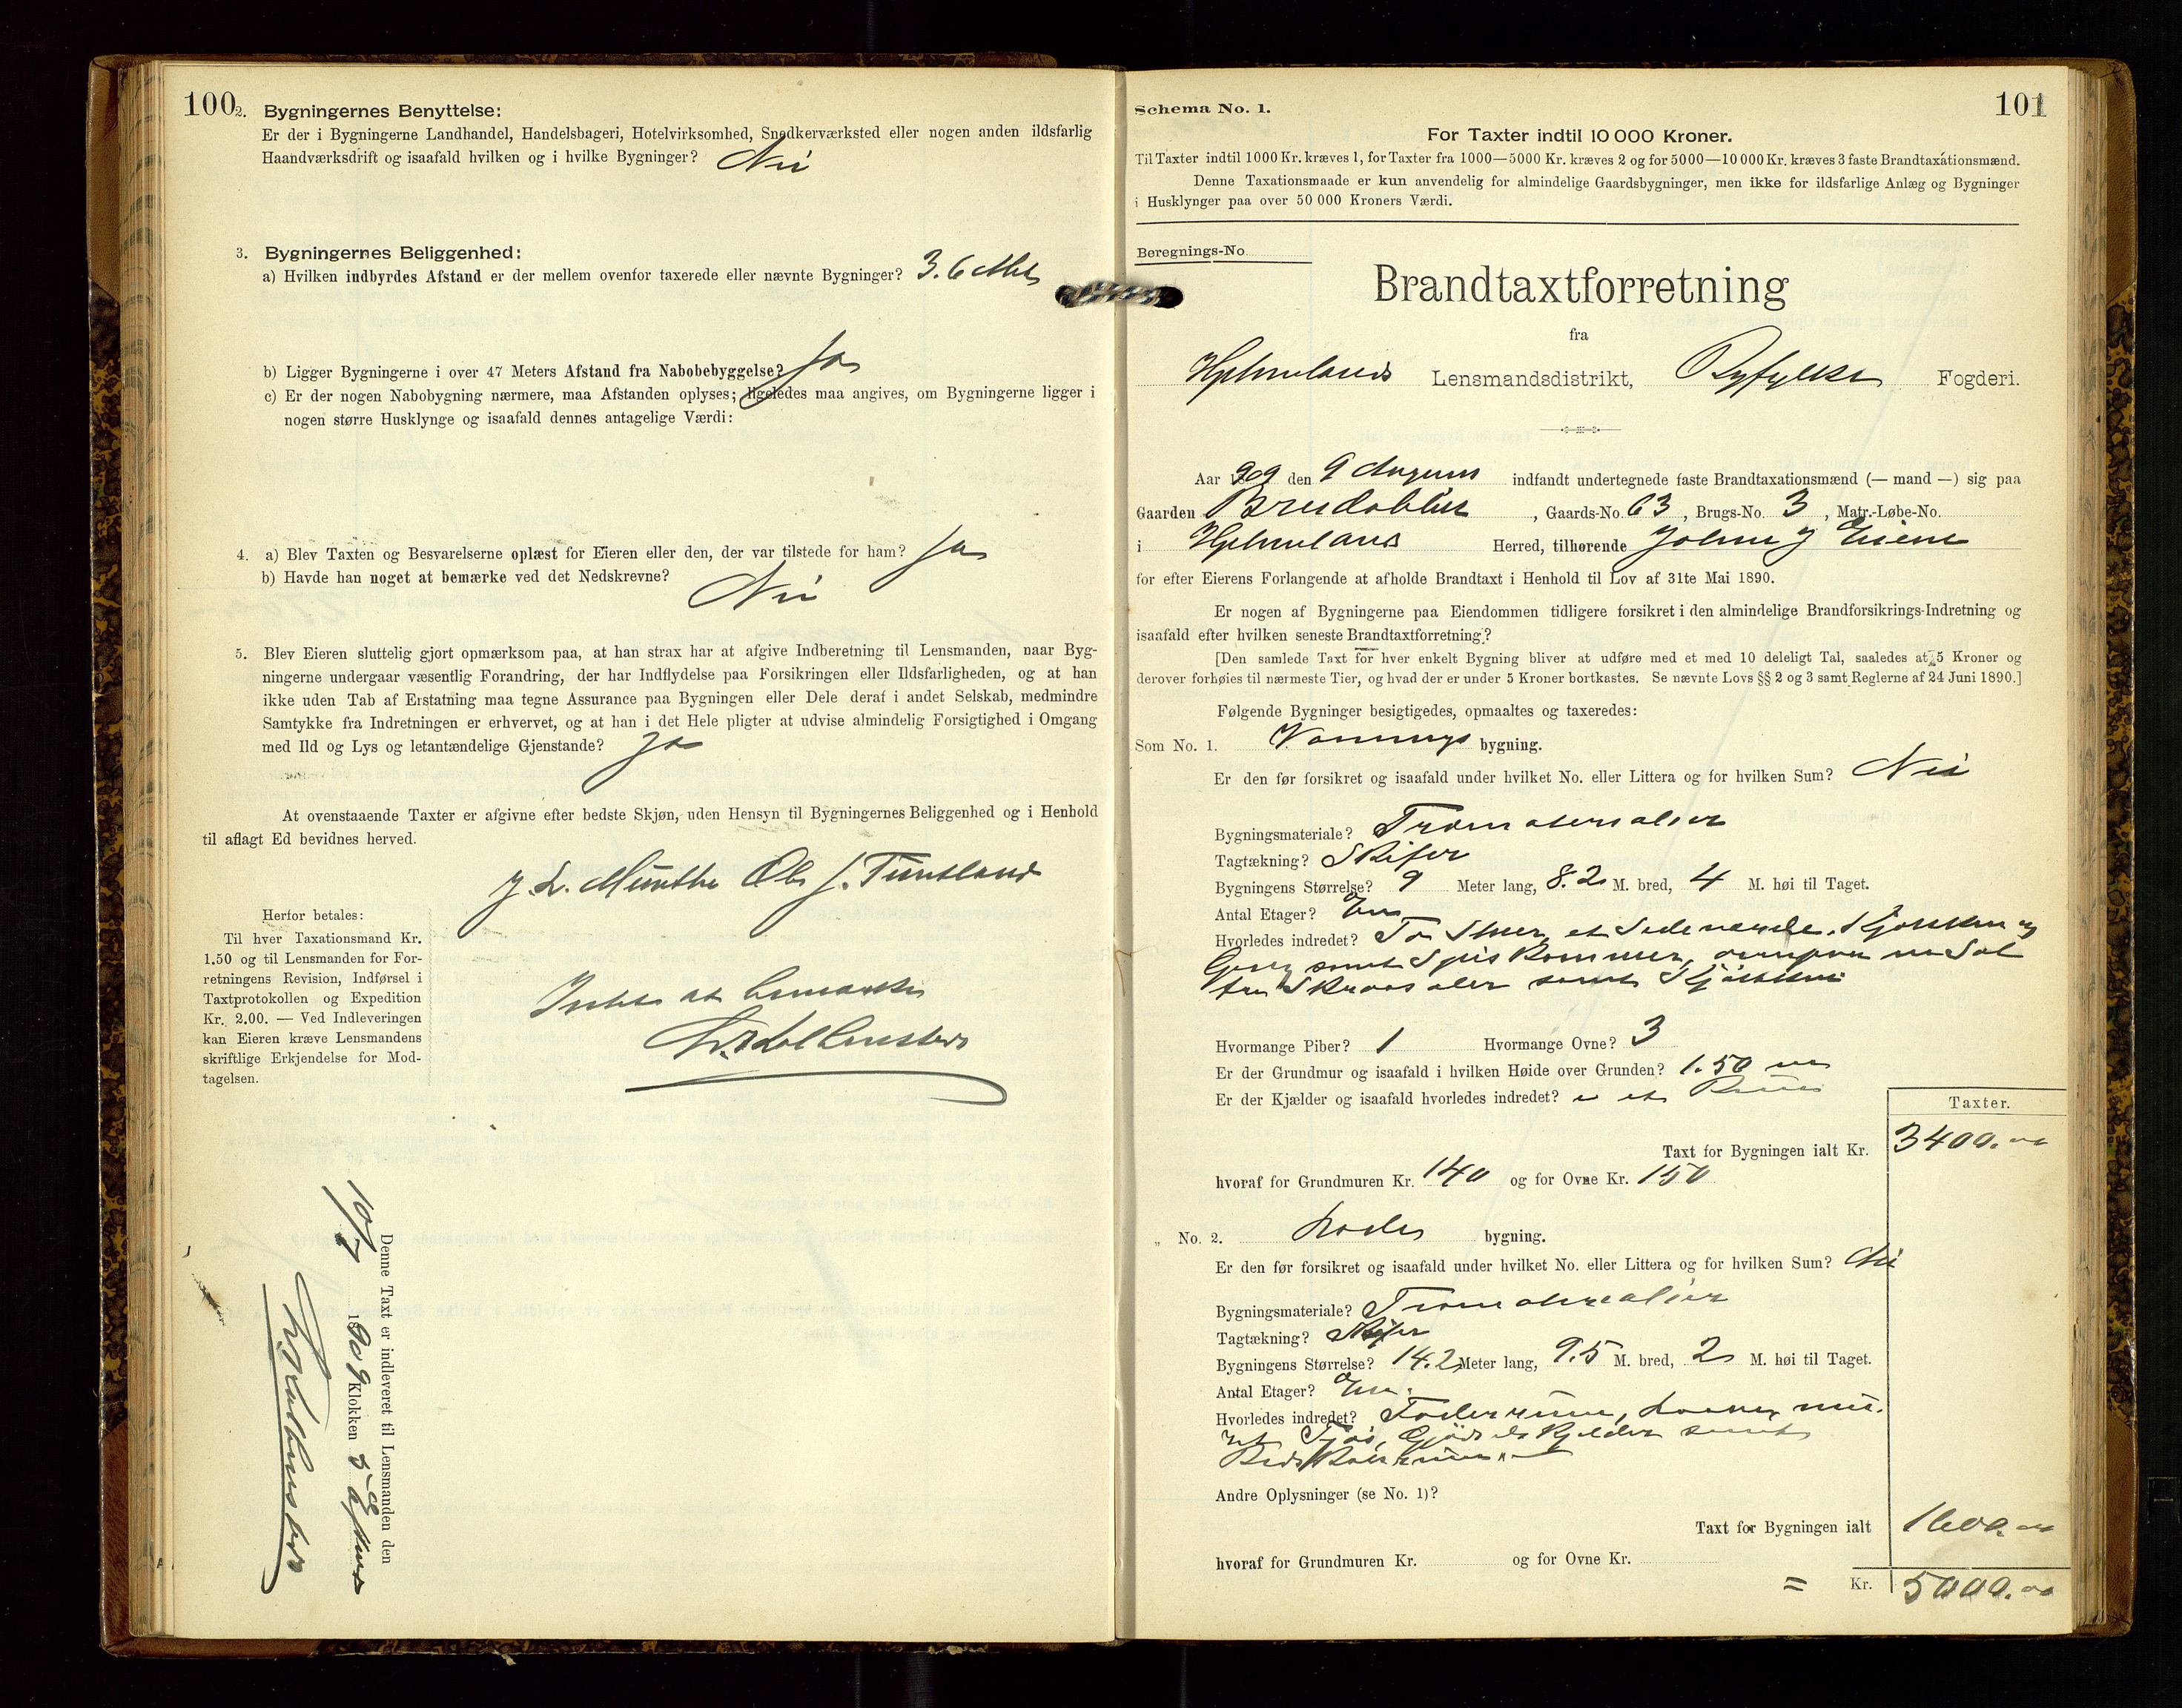 100
2. Bygningernes Benyttelse:
Er der i Bygningerne Landhandel, Handelsbageri, Hotelvirksomhed, Snedkerværksted eller nogen anden ildsfarlig
Haandværksdrift og isaafald hvilken og i hvilke Bygninger? Nei
3. Bygningernes Beliggenhed:
a) Hvilken indbyrdes Afstand er der mellem ovenfor taxerede eller nævnte Bygninger? 3.6 Met
b) Ligger Bygningerne i over 47 Meters Afstand fra Nabobebyggelse? Ja
c) Er der nogen Nabobygning nærmere, maa Afstanden oplyses; ligeledes maa angives, om Bygningerne ligger i
nogen større Husklynge og isaafald dennes antagelige Værdi:
4. a) Blev Taxten og Besvarelserne oplæst for Eieren eller den, der var tilstede for ham? Ja
b) Havde han noget at bemærke ved det Nedskrevne? Nei
5. Blev Eieren sluttelig gjort opmærksom paa, at han strax har at afgive Indberetning til Lensmanden, naar Byg-
ningerne undergaar væsentlig Forandring, der har Indflydelse paa Forsikringen eller Ildsfarligheden, og at han
ikke uden Tab af Erstatning maa tegne Assurance paa Bygningen eller Dele deraf i andet Selskab, medmindre
Samtykke fra Indretningen er erhvervet, og at han i det Hele pligter at udvise almindelig Forsigtighed i Omgang
med Ild og Lys og letantændelige Gjenstande? Ja
At ovenstaaende Taxter er afgivne efter bedste Skjøn, uden Hensyn til Bygningernes Beliggenhed og i Henhold
til aflagt Ed bevidnes herved.
J. L. Munthe Ole J. Tuntland
Herfor betales:
Til hver Taxationsmand Kr.
1.50 og til Lensmanden for For-
retningens Revision, Indførsel i
Taxtprotokollen og Expedition
Kr. 2.00. — Ved Indleveringen
kan Eieren kræve Lensmandens
skriftlige Erkjendelse for Mod-
tagelsen.
Intet at bemærke
Denne Taxt er indleveret til Lensmanden den
10/9 1909 Klokken 5 Efterm
101
Schema No. 1.
For Taxter indtil 10 000 Kroner.
Til Taxter indtil 1000 Kr. kræves 1, for Taxter fra 1000—5000 Kr. kræves 2 og for 5000—10 000 Kr. kræves 3 faste Brandtaxationsmænd.
Denne Taxationsmaade er kun anvendelig for almindelige Gaardsbygninger, men ikke for ildsfarlige Anlæg og Bygninger
i Husklynger paa over 50 000 Kroners Værdi.
Beregnings-No.
Brandtaxtforretning
fra
Hjelmelands Lensmandsdistrikt, Ryfylke Fogderi.
Aar 1909 den 9 August indfandt undertegnede faste Brandtaxationsmænd (— mand —) sig paa
Gaarden , Gaards-No. 63, Brugs-No. 3, Matr.-Løbe-No.
i Hjelmeland Herred, tilhørende J Eiene
for efter Eierens Forlangende at afholde Brandtaxt i Henhold til Lov af 31te Mai 1890.
Er nogen af Bygningerne paa Eiendommen tidligere forsikret i den almindelige Brandforsikrings-Indretning og
isaafald efter hvilken seneste Brandtaxtforretning?
[Den samlede Taxt for hver enkelt Bygning bliver at udføre med et med 10 deleligt Tal, saaledes at 5 Kroner og
derover forhøies til nærmeste Tier, og hvad der er under 5 Kroner bortkastes. Se nævnte Lovs §§ 2 og 3 samt Reglerne af 24 Juni 1890.]
Følgende Bygninger besigtigedes, opmaaltes og taxeredes:
Som No. 1. Vaanings bygning.
Er den før forsikret og isaafald under hvilket No. eller Littera og for hvilken Sum? Nei
Bygningsmateriale? Træmaterialier
Tagtækning? Skifer
Bygningens Størrelse? 9 Meter lang, 8.2 M. bred, 4 M. høi til Taget.
Antal Etager? En
Hvorledes indredet? To Stuer, et Sideværelse, Kjøkken og
Gang samt Spiskammer, ovenpaa en Sal
tre Skraasaler samt Kjøkken
Hvormange Piber? 1 Hvormange Ovne? 3
Er der Grundmur og isaafald i hvilken Høide over Grunden? 1.50 m
Er der Kjælder og isaafald hvorledes indredet? i et Rum
Taxter.
Taxt for Bygningen ialt Kr. 3400.00
hvoraf for Grundmuren Kr. 140 og for Ovne Kr. 150
„ No. 2. Lade bygning.
Er den før forsikret og isaafald under hvilket No. eller Littera og for hvilken Sum? Nei
Bygningsmateriale? Træmaterialier
Tagtækning? Skifer
Bygningens Størrelse? 14.2 Meter lang, 9.5 M. bred, 2 M. høi til Taget.
Antal Etager? En.
Hvorledes indredet? Foderrum, Laave, mu.
ret Fjøs, Gjødselkjelder samt
Redskabsrum
Andre Oplysninger (se No. 1)?
Taxt for Bygningen ialt 1600.00
hvoraf for Grundmuren Kr. og for Ovne Kr.
= Kr. 5000.00